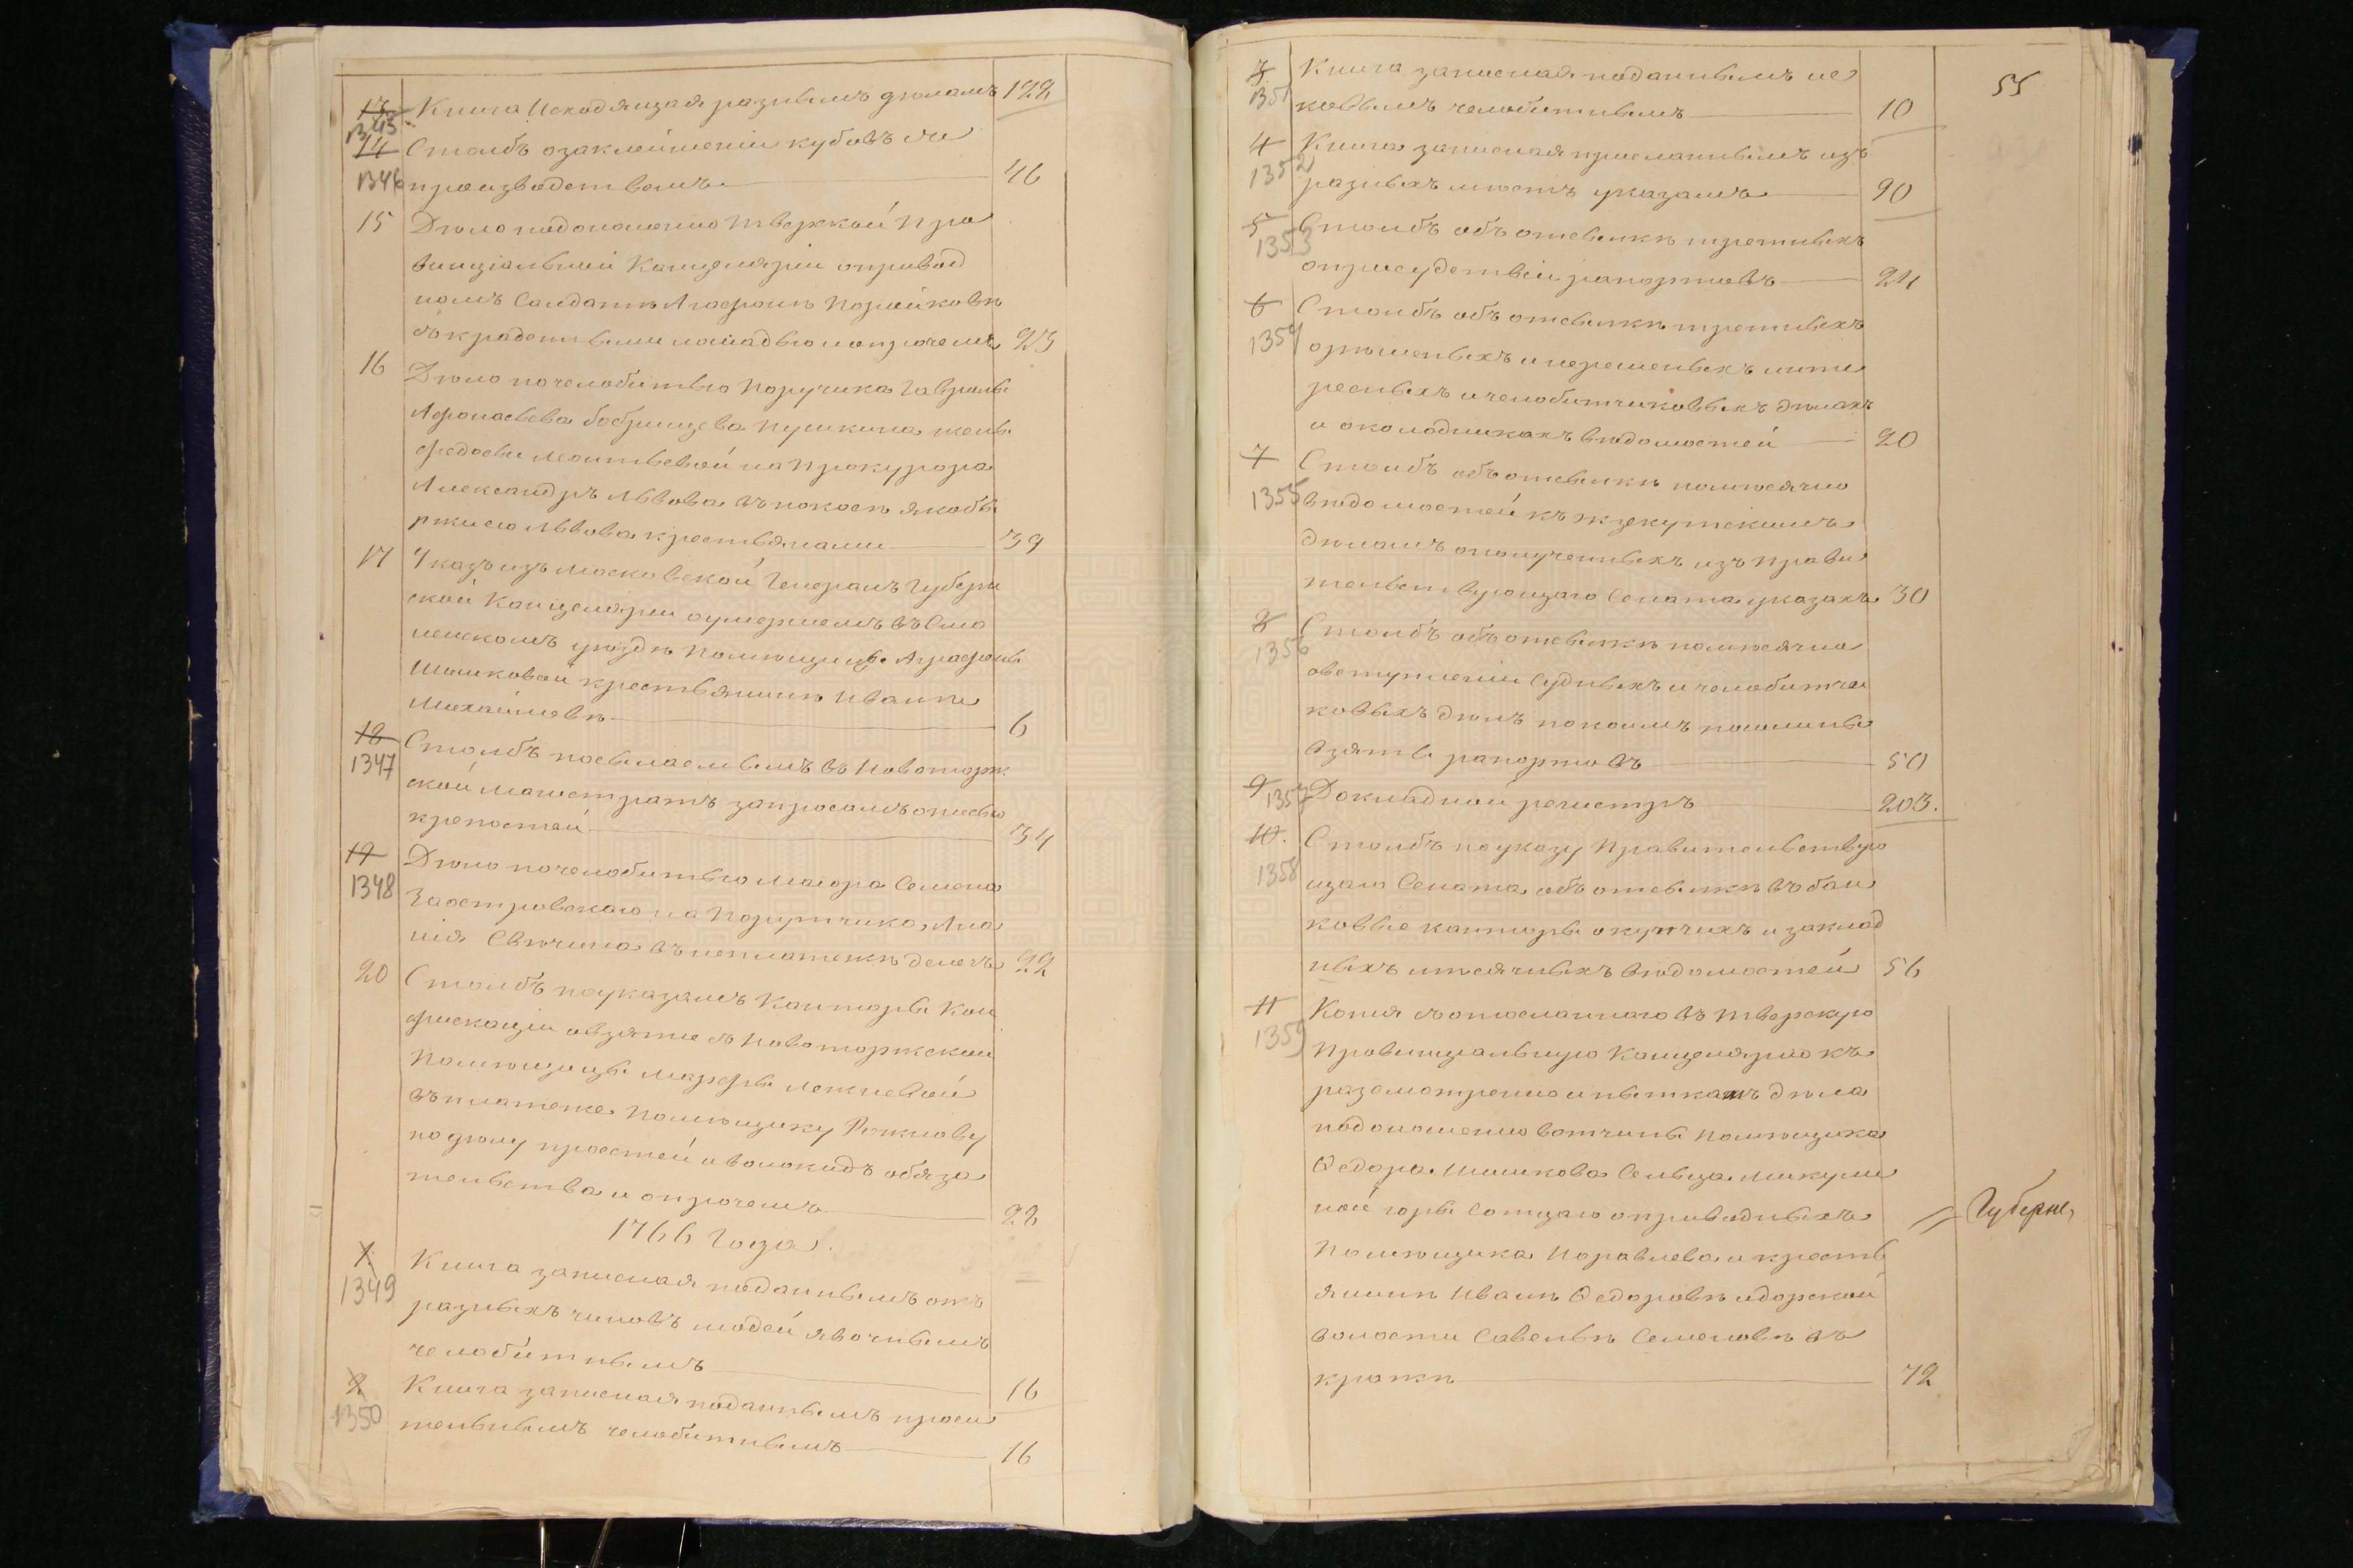 13 Книга Исходящая разнымъ дѣламъ 122
1345
14 Столбъ о заклеймении кубовъ съ
1346 производствомъ 46
15 Дѣло по доношению Тверской Про
винціальной Канцеляріи о привод
номъ Салдатѣ Агафонѣ
съ краденными лошадьми и опрочемъ 23
16 Дѣло по челобитью Поручика Гаврилы
Афонасьева Бобрищева Пушкина жены
Федосьи Леонтьевой на Прокурора
Александръ Львова въ покосѣ якобы
ржи ево Львова крестьянами 39
17 Указъ изъ Московской Генералъ Губерн
ской Канцеляріи о умершемъ въ Смо
ленскомъ уездѣ Помѣщицы Аграфены
Шишковой крестьянинѣ Иванѣ
Михайловѣ 6
18 Столбъ посылаемымъ въ Новоторж
1347 ской Магистратъ запросамъ
крепостей 34
19 Дѣло по челобитью Маеора Семена
1348 Заостровскаго на Порутчика Ана
нія Свѣчина въ неплатежѣ денегъ 22
20 Столбъ по указамъ Канторы Кон
фискаціи о взятье съ Новоторжской
Помѣщицы Марфы
въ платеже Помѣщику
по делу проестей и волокидъ обяза
тельства и опрочемъ 22
1766 Года.
1 Книга записная поданнымъ отъ
1349 разныхъ чиновъ людей явочнымъ
челобитнымъ 16
2 Книга записная поданнымъ проси
1350 тельнымъ челобитнымъ 16
55
3 Книга записная поданнымъ ис
1351 ковымъ челобитнымъ 10
4 Книга записная присланнымъ изъ
1352 разныхъ мѣстъ указамъ 90
5 Столбъ объ отсылкѣ третныхъ
1353 о присудствіи рапортовъ 24
6 Столбъ объ отсылкѣ третныхъ
1354 о решеныхъ и нерешеныхъ инте
ресныхъ и челобитчиковыхъ дѣлахъ
и околодникахъ вѣдомостей 20
7 Столбъ объ отсылкѣ помѣсячно
1355 вѣдомостей къ экзекуторскимъ
дѣламъ о полученныхъ изъ Прави
тельствующаго Сената указахъ 30
8 Столбъ объ отсылкѣ помѣсячно
1356 о вступленіи судныхъ и челобитчи
ковыхъ дѣлъ по коимъ пошлины
взяты рапортовъ 50
9 1357 Докладной регистръ 203.
10. Столбъ по указу Правительствую
1358 щаго Сената объ отсылкѣ въ бан
ковые канторы о купчихъ и заклад
ныхъ мѣсячныхъ вѣдомостей 56
11 Копія съ отосланнаго въ Тверскую
1359 Провинціальную Канцелярію къ
разсмотренію дѣла
по доношению вотчины Помѣщика
Федора Шишкова Сельца Микули
ной горы Соцкаго о приводныхъ
Губерн,
Помѣщика и кресть
янинѣ Иванѣ Федоровѣ
волости Савельѣ Семеновѣ въ
кражи 72